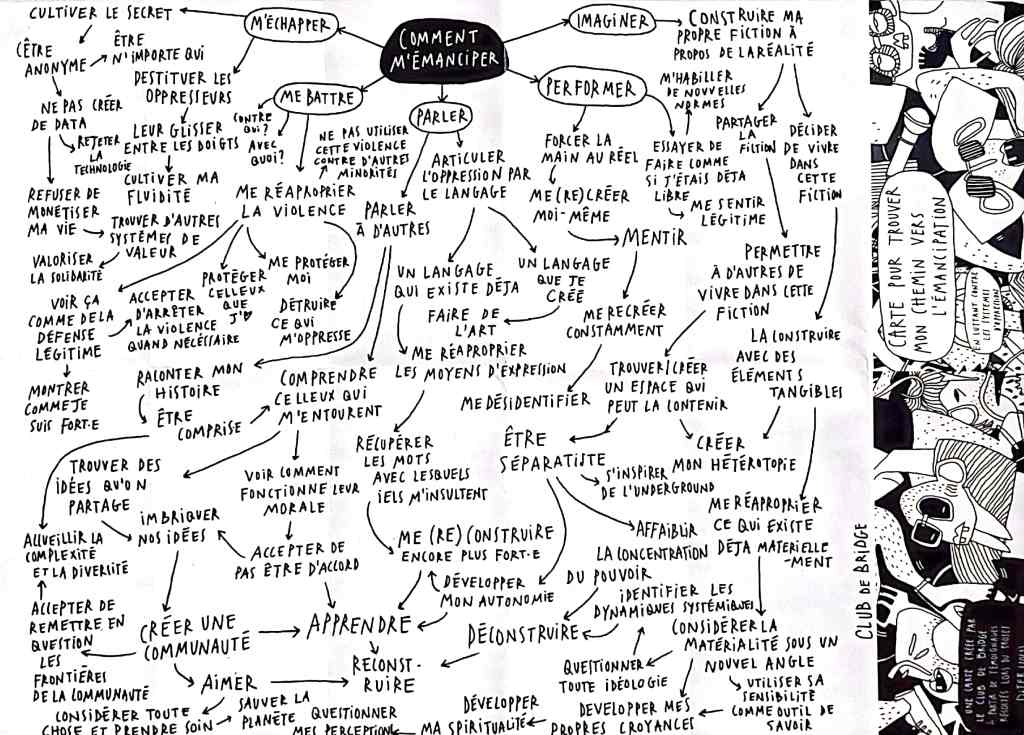 COMMENT
M'ÉMANCIPER
M'ÉCHAPPER
CULTIVER LE SECRET
ÊTRE
ANONYME
ÊTRE
N'IMPORTE QUI
NE PAS CRÉER
DE DATA
REJETER
LA
TECHNOLOGIE
REFUSER DE
MONÉTISER
MA VIE
TROUVER D'AUTRES
SYSTÈMES DE
VALEUR
VALORISER
LA SOLIDARITÉ
DESTITUER LES
OPPRESSEURS
LEUR GLISSER
ENTRE LES DOIGTS
CULTIVER MA
FLUIDITÉ
ME BATTRE
CONTRE
QUI?
AVEC
QUOI?
NE PAS UTILISER
CETTE VIOLENCE
CONTRE D'AUTRES
MINORITÉS
ME RÉAPROPRIER
LA VIOLENCE
VOIR ÇA
COMME DE LA
DÉFENSE
LÉGITIME
ACCEPTER
D'ARRÊTER
LA VIOLENCE
QUAND NÉCÉSSAIRE
PROTÉGER
CELLEUX
QUE
J'♥
ME PROTÉGER
MOI
DÉTRUIRE
CE QUI
M'OPPRESSE
MONTRER
COMME JE
SUIS FORT·E
PARLER
PARLER
À D'AUTRES
ARTICULER
L'OPPRESSION PAR
LE LANGAGE
UN LANGAGE
QUI EXISTE DÉJA
UN LANGAGE
QUE JE
CRÉÉ
FAIRE DE
L'ART
ME RÉAPROPRIER
LES MOYENS D'ÉXPRESSION
RACONTER MON
HISTOIRE
ÊTRE
COMPRISE
COMPRENDRE
CELLEUX QUI
M'ENTOURENT
RÉCUPÉRER
LES MOTS
AVEC LESQUELS
IELS M'INSULTENT
TROUVER DES
IDÉES QU'ON
PARTAGE
VOIR COMMENT
FONCTIONNE LEUR
MORALE
IMBRIQUER
NOS IDÉES
ACCEPTER DE
PAS ÊTRE D'ACCORD
ACCUEILLIR LA
COMPLEXITÉ
ET LA DIVERSITÉ
ACCEPTER DE
REMETTRE EN
QUESTION
LES
FRONTIÈRES
DE LA COMMUNAUTÉ
CRÉER UNE
COMMUNAUTÉ
APPRENDRE
AIMER
RECONST-
RUIRE
ME (RE)CONSTRUIRE
ENCORE PLUS FORT·E
DÉVELOPPER
MON AUTONOMIE
CONSIDÉRER TOUTE
CHOSE ET PRENDRE SOIN
SAUVER LA
PLANÈTE
QUESTIONNER
MES PERCEPTIONS
DÉVELOPPER
MA SPIRITUALITÉ
DÉVELOPPER MES
PROPRES CROYANCES
IMAGINER
CONSTRUIRE MA
PROPRE FICTION À
PROPOS DE LA RÉALITÉ
PERFORMER
FORCER LA
MAIN AU RÉEL
ME (RE)CRÉER
MOI-MÊME
MENTIR
ME RECRÉER
CONSTAMMENT
ME DÉSIDENTIFIER
M'HABILLER
DE NOUVELLES
NORMES
ESSAYER DE
FAIRE COMME
SI J'ÉTAIS DÉJA
LIBRE
ME SENTIR
LÉGITIME
PARTAGER
LA
FICTION
DÉCIDER
DE VIVRE
DANS
CETTE
FICTION
PERMETTRE
À D'AUTRES DE
VIVRE DANS CETTE
FICTION
LA CONSTRUIRE
AVEC DES
ÉLÉMENTS
TANGIBLES
TROUVER/CRÉER
UN ESPACE QUI
PEUT LA CONTENIR
ÊTRE
SÉPARATISTE
S'INSPIRER
DE L'UNDERGROUND
CRÉER
MON HÉTÉROTOPIE
AFFAIBLIR
LA CONCENTRATION
DU POUVOIR
ME RÉAPROPRIER
CE QUI EXISTE
DÉJA MATERIELLE
-MENT
IDENTIFIER LES
DYNAMIQUES SYSTÉMIQUES
DÉCONSTRUIRE
QUESTIONNER
TOUTE IDÉOLOGIE
CONSIDÉRER LA
MATÉRIALITÉ SOUS UN
NOUVEL ANGLE
UTILISER SA
SENSIBILITÉ
COMME OUTIL DE
SAVOIR
CLUB DE BRIDGE
CARTE POUR TROUVER
MON CHEMIN VERS
L'ÉMANCIPATION
EN LUTTANT CONTRE
LES SYSTÈMES
D'OPPRESSION
UNE CARTE CRÉÉE PAR
LE CLUB DE BRIDGE
À PARTIR DE TÉMOIGNAGES